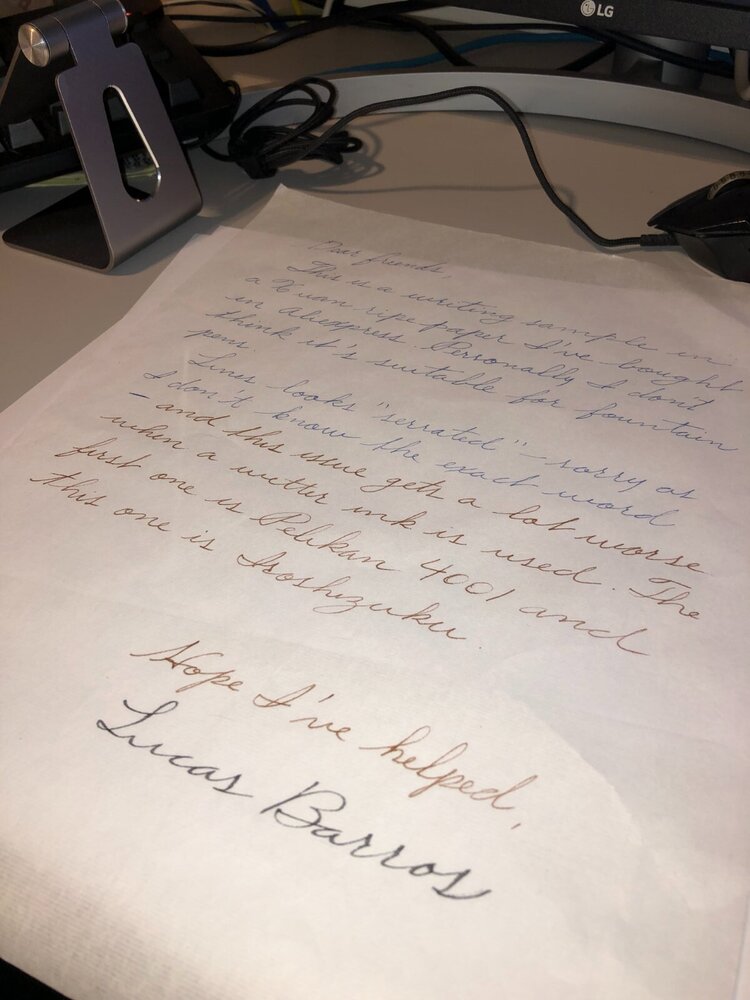 LG
Dear friends,
This is a writing sample in
a Xuan ripe paper I've bought
in Aliexpress. Personally I don't
think it's suitable for fountain
pens.
Lines looks "serrated" - sorry as
I don't know the exact word
- and this issue gets a lot worse
when a wetter ink is used. The
first one is Pelikan 4001 and
this one is Iroshizuku.
Hope I've helped,
Lucas Barros